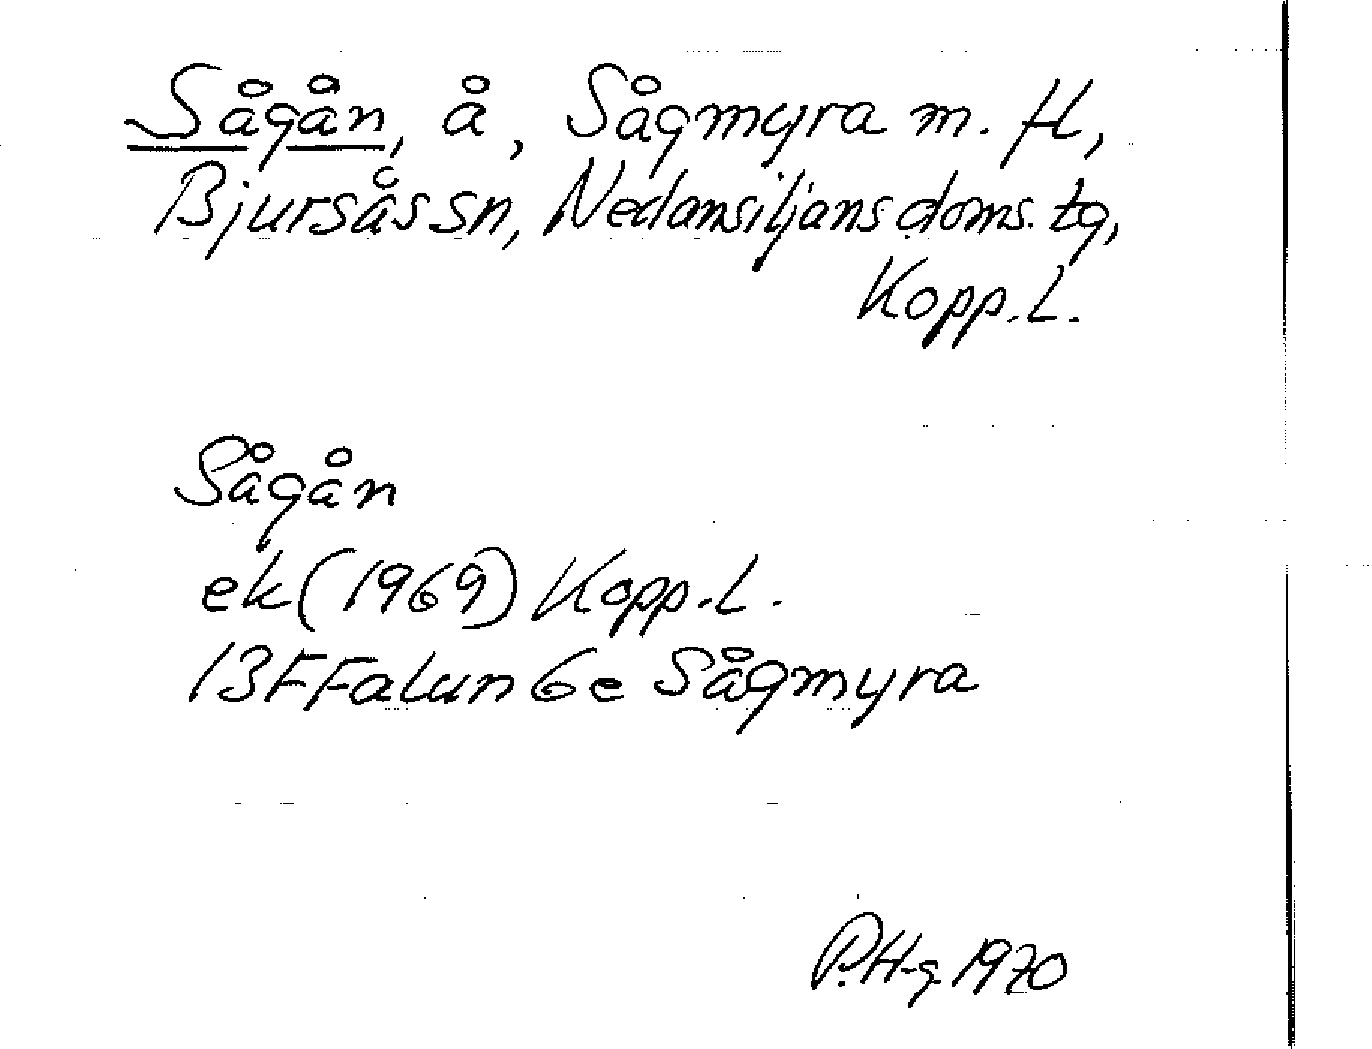 Sågån, å, Sågmyra m. fl,
Bjursås sn, Nedansiljans doms. tg,
Kopp. L.
Sågån
ek (1969) Kopp. L.
13F Falun 6e Sågmyra
P. H-g. 1970